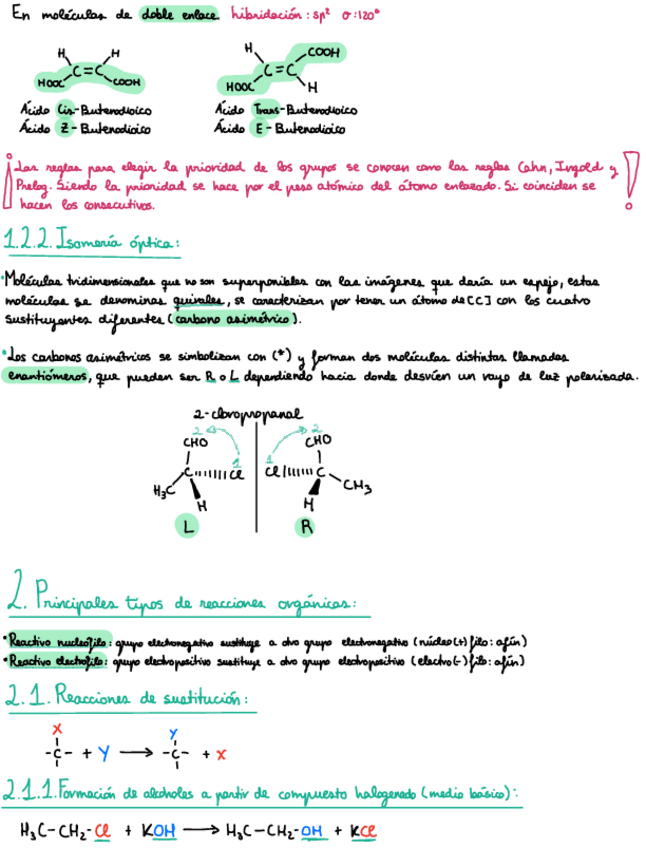 En moléculas de doble enlace hibridación: sp² σ:120°
H H H COOH
C=C C=C
HOOC COOH HOOC H
Ácido Cis-Butenodioico Ácido Trans-Butenodioico
Ácido Z-Butenodioico Ácido E-Butenodioico
¡Las reglas para elegir la prioridad de los grupos se conocen como las reglas Cahn, Ingold y
Prelog. Siendo la prioridad se hace por el peso atómico del átomo enlazado. Si coinciden se
hacen los consecutivos. !
1.2.2. Isomería óptica:
•Moléculas tridimensionales que no son superponibles con las imágenes que daría un espejo, estas
moléculas se denominas quirales, se caracterizan por tener un átomo de [C] con los cuatro
sustituyentes diferentes (carbono asimétrico).
•Los carbonos asimétricos se simbolizan con (*) y forman dos moléculas distintas llamadas
enantiómeros, que pueden ser R o L dependiendo hacia donde desvíen un rayo de luz polarizada.
2-cloropropanal
2 2
CHO CHO
1 1
C Cl Cl C
H₃C H H CH₃
L R
2. Principales tipos de reacciones orgánicas:
•Reactivo nucleófilo: grupo electronegativo sustituye a otro grupo electronegativo (núcleo(+) filo: afín)
•Reactivo electrófilo: grupo electropositivo sustituye a otro grupo electropositivo (electro(-) filo: afín)
2.1. Reacciones de sustitución:
X Y
-C- + Y → -C- + X
2.1.1. Formación de alcoholes a partir de compuesto halogenado (medio básico):
H₃C-CH₂-Cl + KOH → H₃C-CH₂-OH + KCl